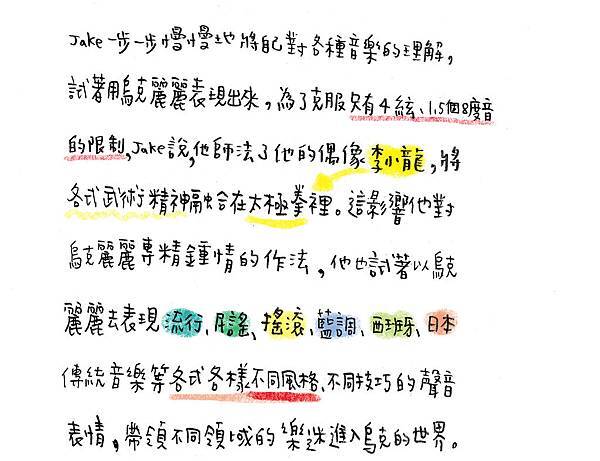 Jake一步一步慢慢地將自己對各種音樂的理解,
試著用烏克麗麗表現出來,為了克服只有4絃、1.5個8度音
的限制,Jake說,他師法了他的偶像李小龍,將
各式武術精神融合在太極拳裡。這影響他對
烏克麗麗專精鍾情的作法,他也試著以烏克
麗麗去表現流行、民謠、搖滾、藍調、西班牙、日本
傳統音樂等各式各樣不同風格、不同技巧的聲音
表情,帶領不同領域的樂迷進入烏克的世界。